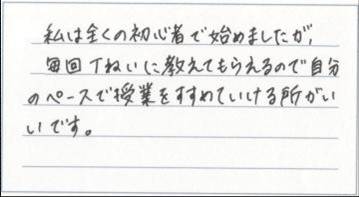 私は全くの初心者で始めましたが、
毎回丁ねいに教えてもらえるので自分
のペースで授業をすすめていける所がい
いです。